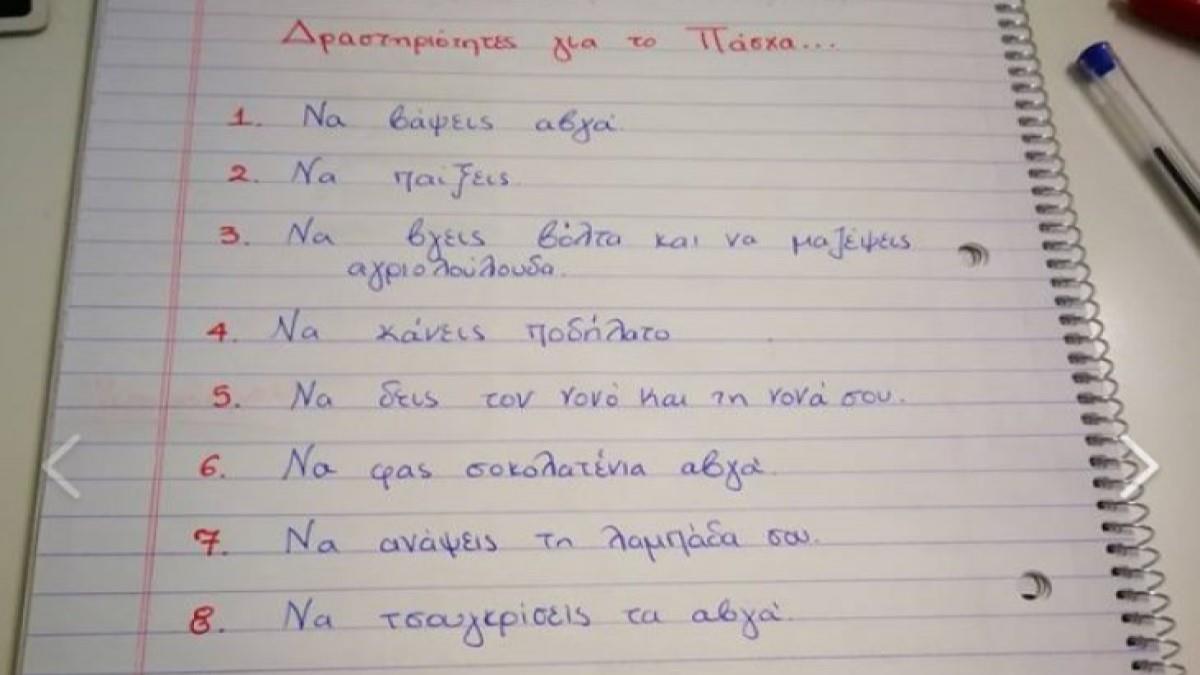 Δραστηριότητες για το Πάσχα...
1. Να βάψεις αβγά.
2. Να παίξεις.
3. Να βγεις βόλτα και να μαζέψεις
αγριολούλουδα.
4. Να κάνεις ποδήλατο
5. Να δεις τον νονό και τη νονά σου.
6. Να φας σοκολατένια αβγά.
7. Να ανάψεις τη λαμπάδα σου.
8. Να τσουγκρίσεις τα αβγά.